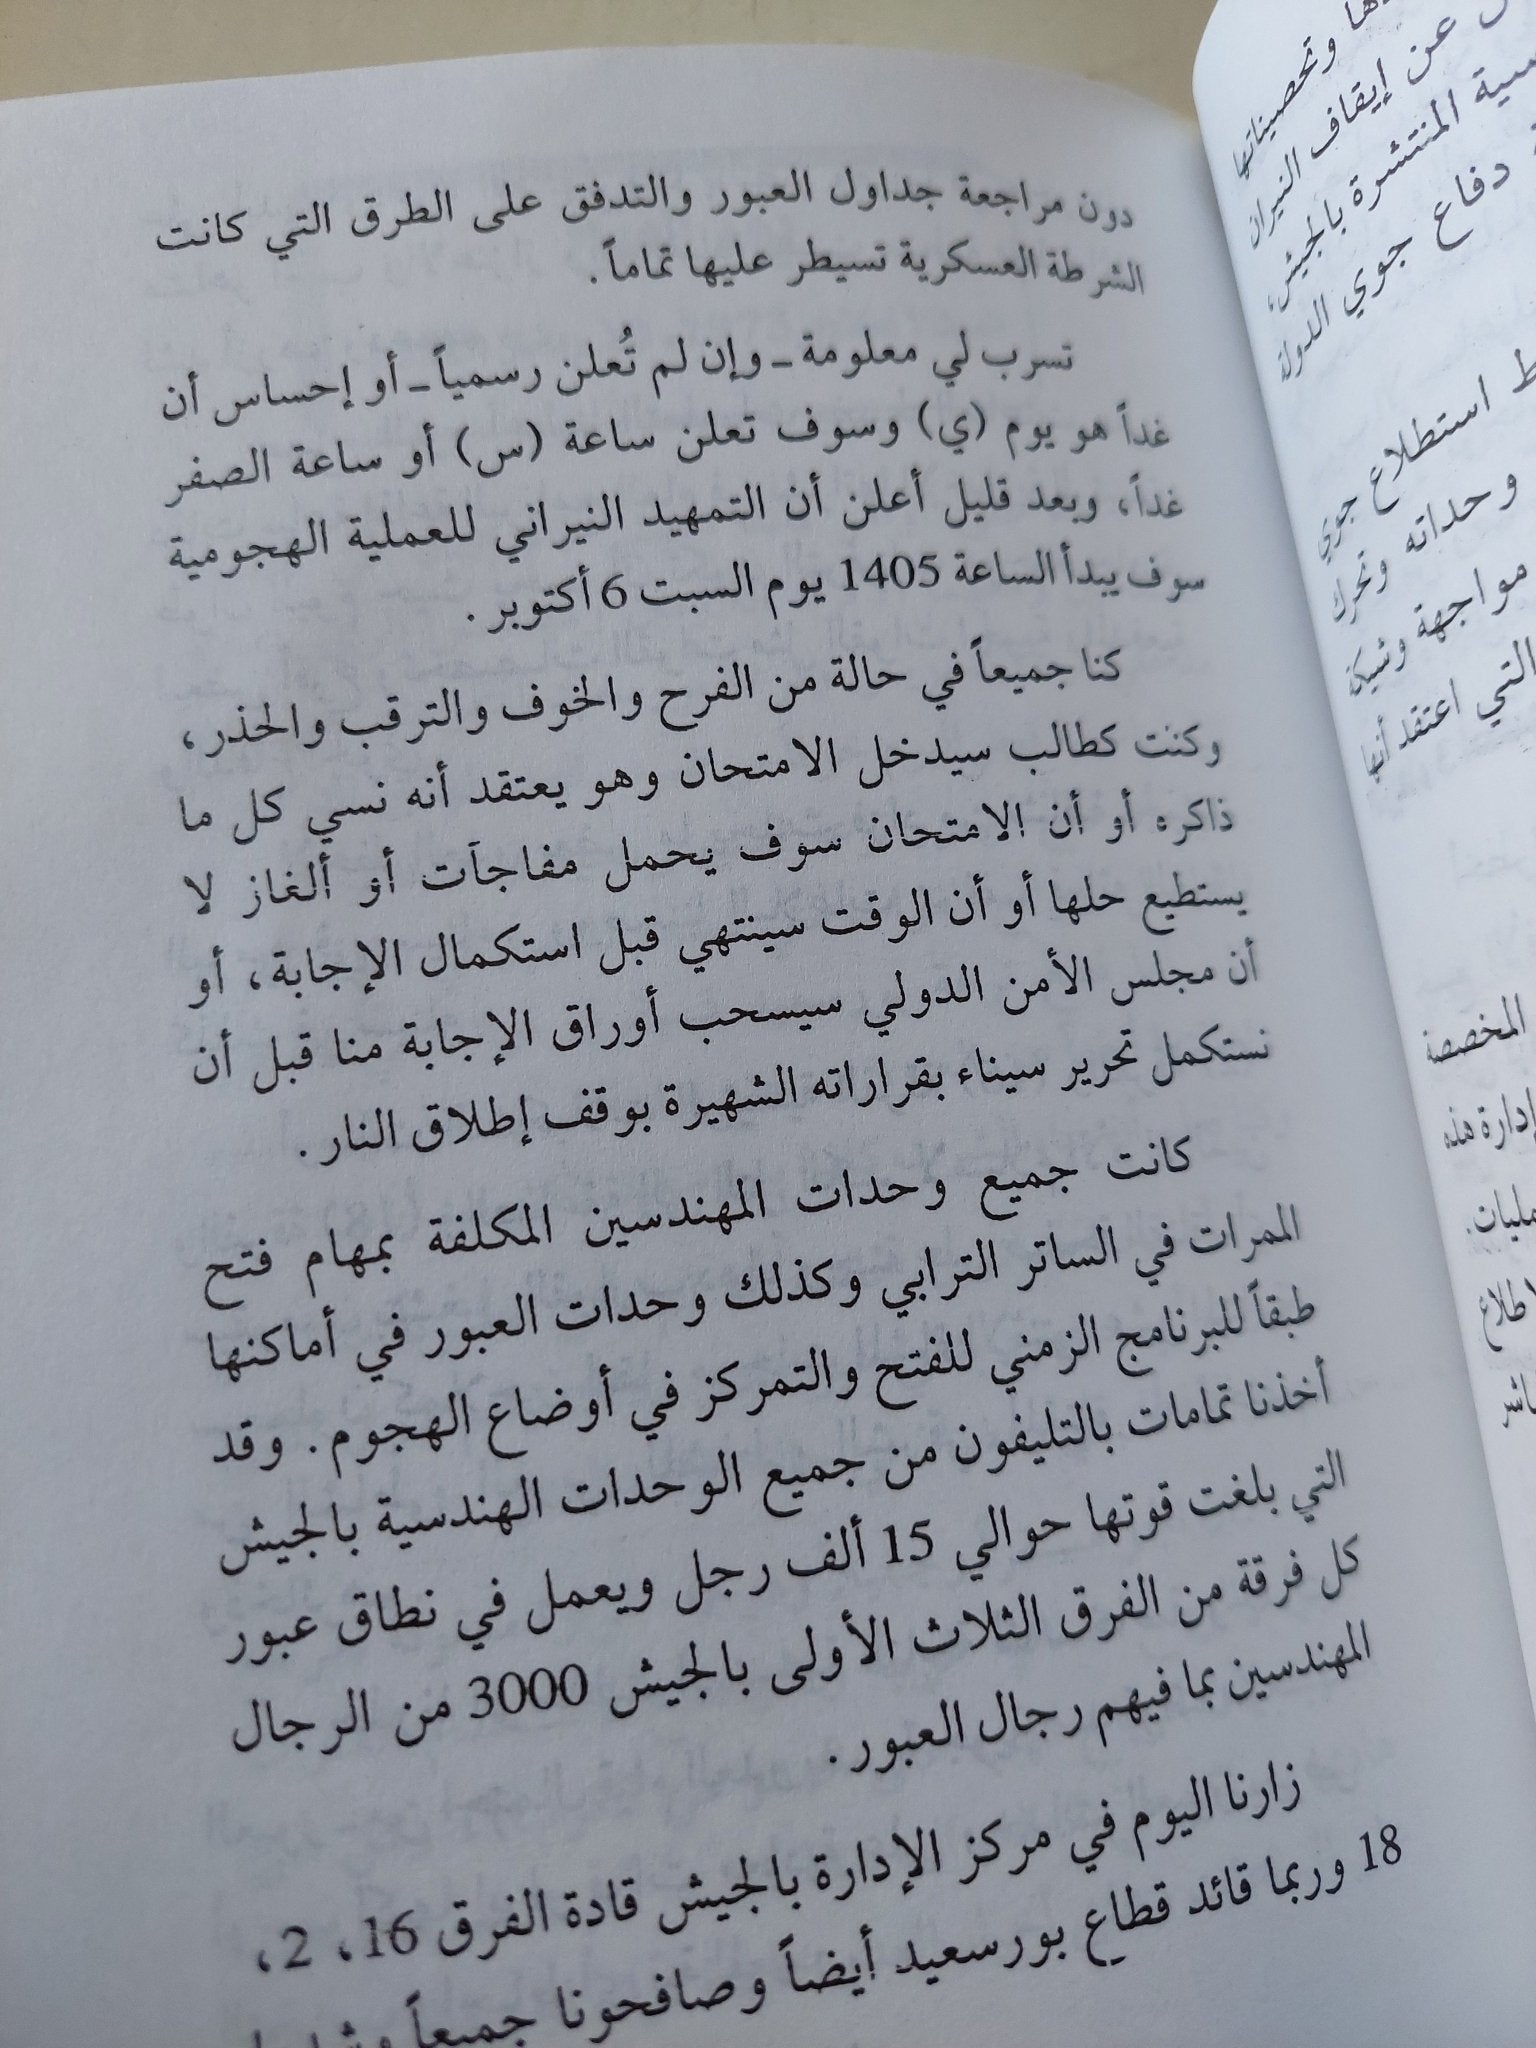 دون مراجعة جداول العبور والتدفق على الطرق التي كانت
الشرطة العسكرية تسيطر عليها تماماً.
تسرب لي معلومة ـ وإن لم تُعلن رسمياً ـ أو إحساس أن
غداً هو يوم (ي) وسوف تعلن ساعة (س) أو ساعة الصفر
غداً، وبعد قليل أعلن أن التمهيد النيراني للعملية الهجومية
سوف يبدأ الساعة 1405 يوم السبت 6 أكتوبر.
كنا جميعاً في حالة من الفرح والخوف والترقب والحذر،
وكنت كطالب سيدخل الامتحان وهو يعتقد أنه نسي كل ما
ذاكره أو أن الامتحان سوف يحمل مفاجآت أو ألغاز لا
يستطيع حلها أو أن الوقت سينتهي قبل استكمال الإجابة، أو
أن مجلس الأمن الدولي سيسحب أوراق الإجابة منا قبل أن
نستكمل تحرير سيناء بقراراته الشهيرة بوقف إطلاق النار.
كانت جميع وحدات المهندسين المكلفة بمهام فتح
الممرات في الساتر الترابي وكذلك وحدات العبور في أماكنها
طبقاً للبرنامج الزمني للفتح والتمركز في أوضاع الهجوم. وقد
أخذنا تمامات بالتليفون من جميع الوحدات الهندسية بالجيش
التي بلغت قوتها حوالي 15 ألف رجل ويعمل في نطاق عبور
كل فرقة من الفرق الثلاث الأولى بالجيش 3000 من الرجال
المهندسين بما فيهم رجال العبور.
زارنا اليوم في مركز الإدارة بالجيش قادة الفرق 16، 2،
18 وربما قائد قطاع بورسعيد أيضاً وصافحونا جميعاً
وتحصيناتها
عن إيقاف النيران
المنتشرة بالجيش،
دفاع جوي الدولة
استطلاع جوي
وحداته وتحرك
مواجهة وشيكة
التي اعتقد أنها
المخصصة
إدارة هذه